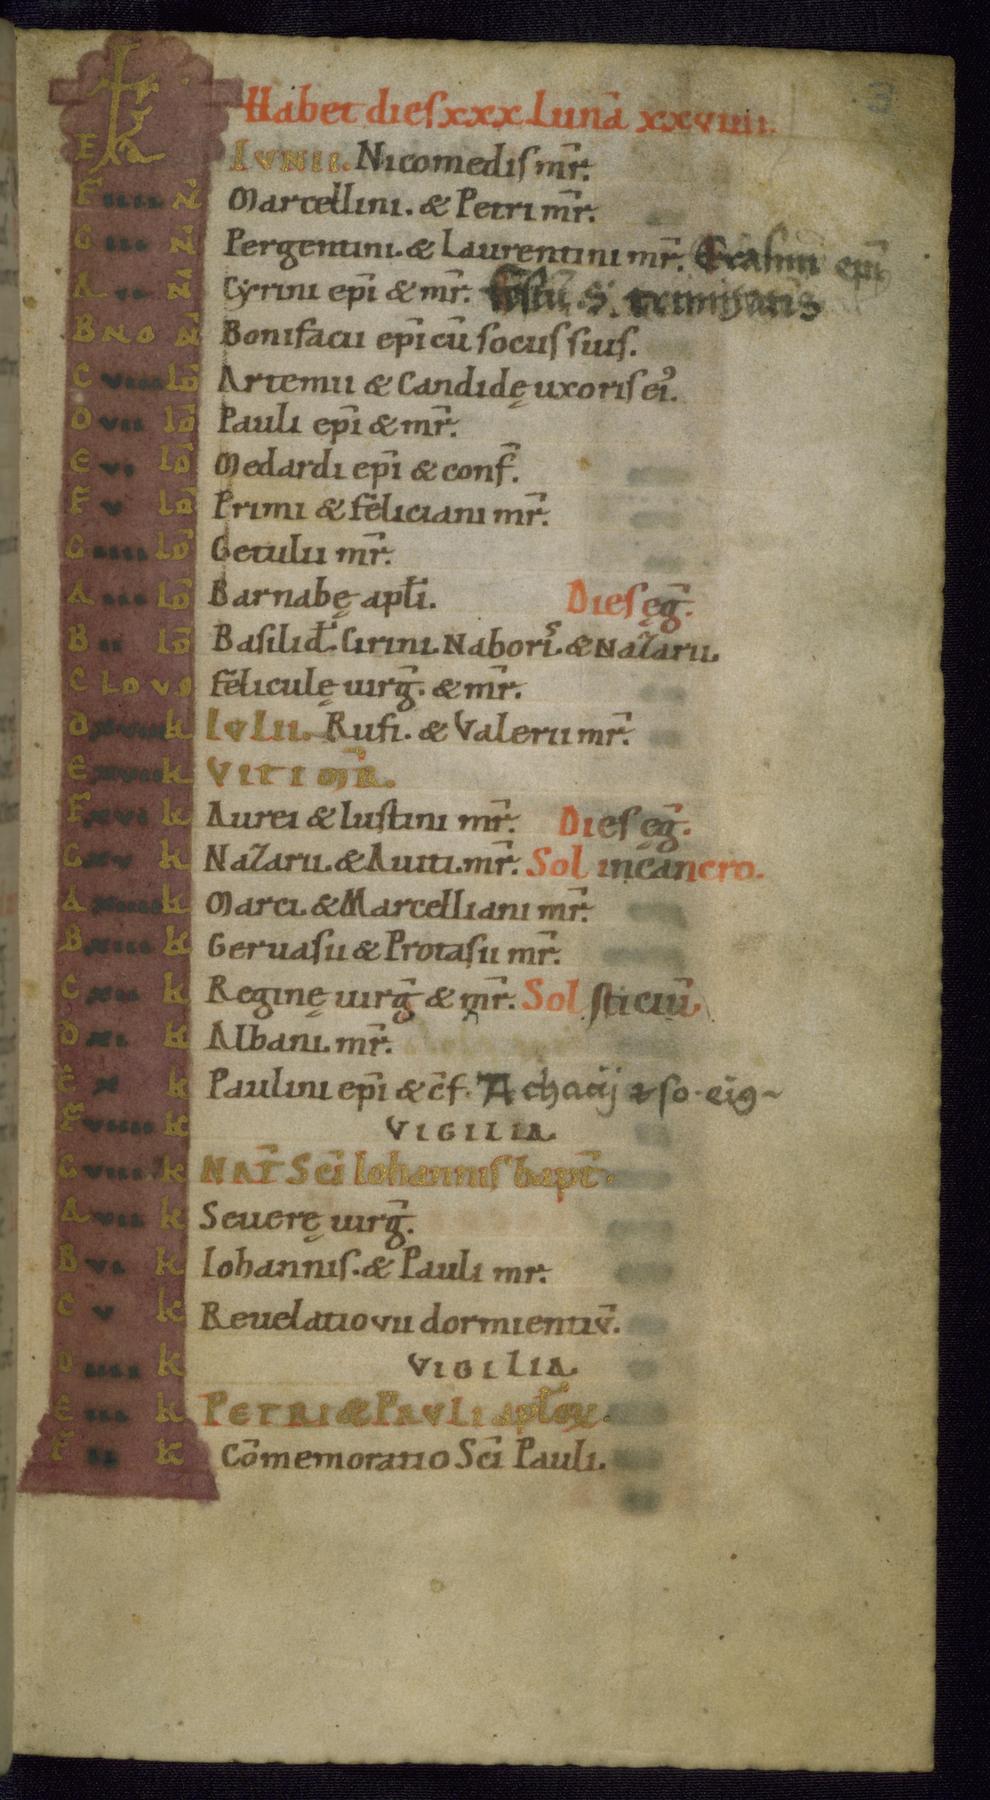 3
Habet dies xxx. Lunā xxviiii.
E Ka IVNII. Nicomedis mr̄.
F iiii N̄ Marcellini. & Petri mr̄.
G iii N̄ Pergentini. & Laurentini mr̄. Erasmi ep̄i
A N̄ Cẏrini ep̄i & mr̄. S. trinitatis
B NO N̄ Bonifacii ep̄i cū sociis suis.
C viii Id̄ Artemii & Candidę uxoris ei᾽.
D vii Id̄ Pauli ep̄i & mr̄.
E vi Id̄ Medardi ep̄i & conf̄.
F v Id̄ Primi & feliciani mr̄.
G iiii Id̄ Getulii mr̄.
A iii Id̄ Barnabę apl̄i. Dies ęḡ.
B ii Id̄ Basilid̄. Cirini. Naboris & Nazarii.
C IDVS felicule̜ uirḡ. & mr̄.
D xviii k IVLII. Rufi. & Valerii mr̄.
E xvii k VITI MR̄.
F xvi k Aurei & Iustini mr̄. Dies ęḡ.
G xv k Nazarii. & Auiti. mr̄. Sol in cancro.
A xiiii k Marci. & Marcelliani mr̄.
B xiii k Geruasii & Protasii mr̄.
C xii k Reginę uirḡ & mr̄. Sol sticiū
D xi k Albani. mr̄.
E x k Paulini ep̄i & c̄f. Achacij ⁊ so. ei9
F viiii k VIGILIA.
G viii k NAT̄ Sc̄i Iohannis bapt̄.
A vii k Seuerę uirḡ.
B vi k Iohannis. & Pauli mr.
C v k Reuelatio vii dormientiū.
D iiii k VIGILIA.
E iii k PETRI & PAVLI apl̄oꝝ.
F ii k Cōmemoratio Sc̄i Pauli.